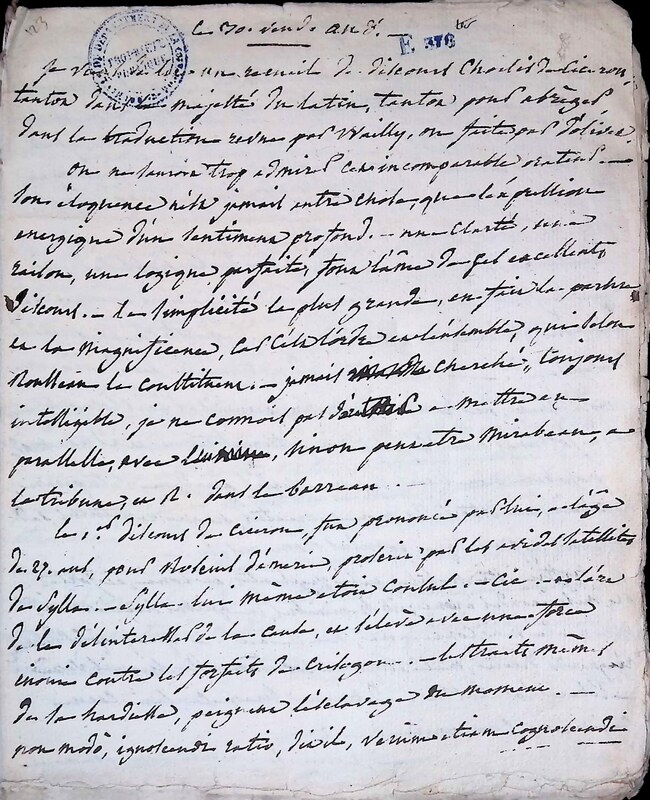 23
le 30. vend. an 8.
E 376
PROPRIÉTÉ PUBLIQUE
je un recueil de discours choisis de Ciceron,
tantot dans la majesté du latin, tantot pour abréger,
dans la traduction revue par Wailly, ou faite par d'olivet.
On ne sauroit trop admirer cet incomparable orateur. —
son éloquence n'est jamais autre chose, que l'expression
énergique d'un sentiment profond. — une clarté, une
raison, une logique parfaite, sont l'âme de ses excellents
discours. — la simplicité la plus grande, en fait la parure
et la magnificence, car c'est l'ordre et l'ensemble, qui selon
Rousseau la constituent. — jamais cherché, toujours
intelligible, je ne connois pas a mettre en
parallelle, avec , sinon peut etre Mirabeau, a
la tribune, et R. dans le barreau.
le 1.er discours de Ciceron, fut prononcé par lui, a l'âge
de 27. ans, pour Roscius d'amerie, proscrit par les avides satellites
de Sylla. — Sylla lui même étoit consul. — Cic.
de le désintéresser de la cause, et s'élève avec une force
inouie contre les forfaits de Crisogon. — les traits mêmes
de sa hardiesse, peignent l'esclavage du moment. —
non modò, ignoscendi ratio, dit il, verùm etiam cognoscendi